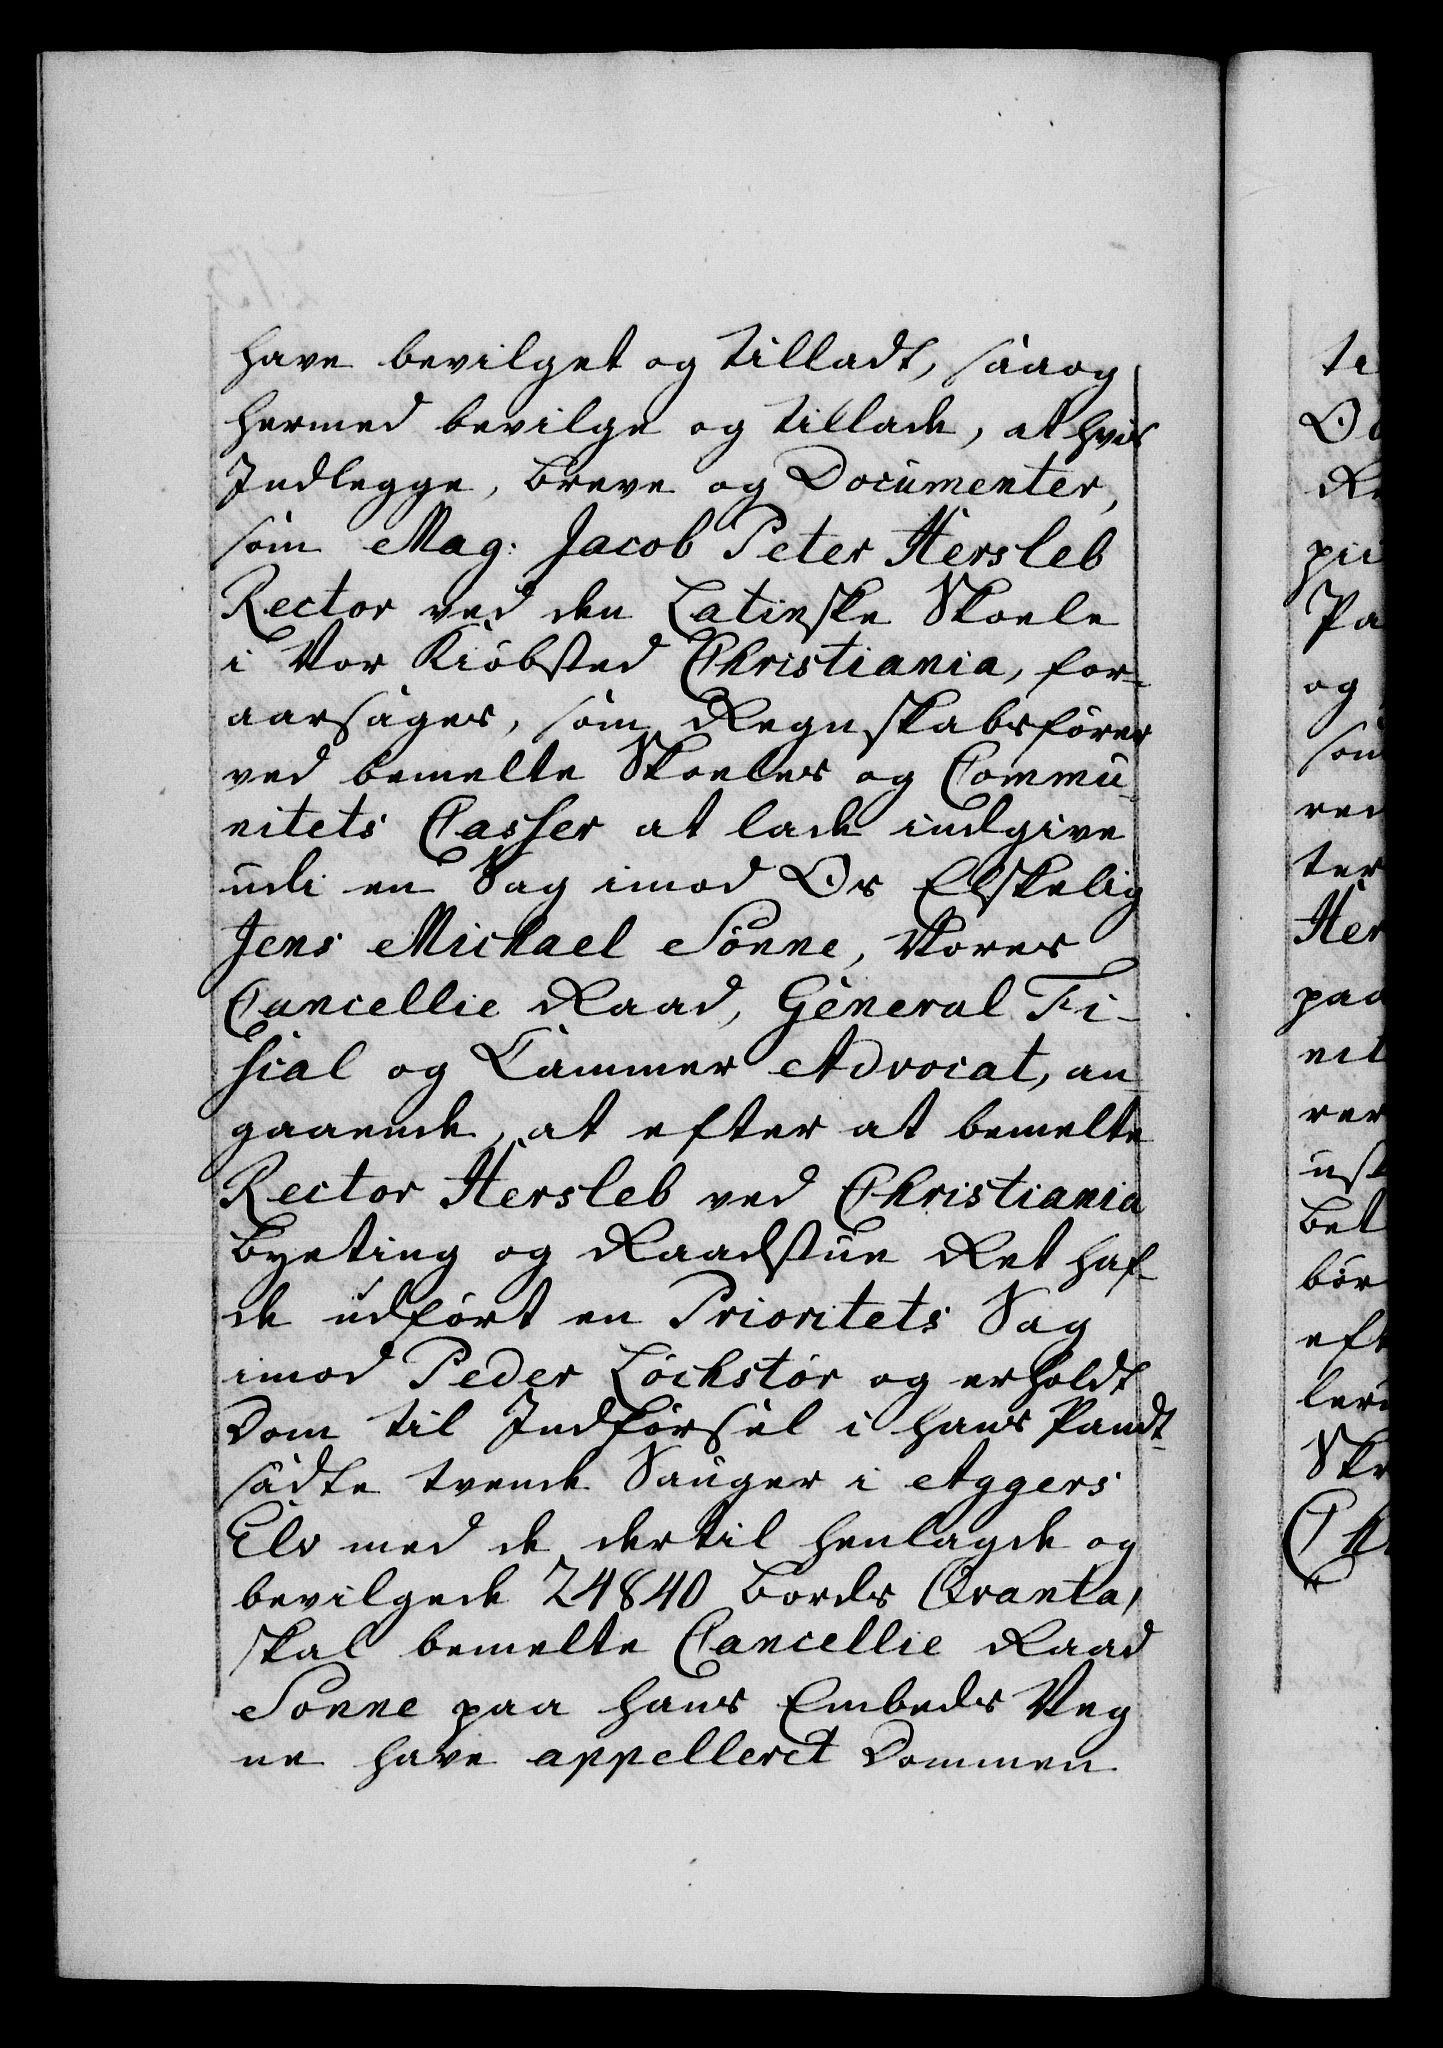 have bevilget og tilladt, saaog
hermed bevilge og tillade, at hvis
Indlegge, breve og Documenter,
som Mag: Jacob Peter Hersleb
Rector ved den Latinske Skoele
i Vor Kiöbsted Christiania, for-
aarsages, som Regnskabsförer
ved bemelte Skoeles og Commu-
nitets Casser at lade indgive
udi en Sag imod Os Elskelig
Jens Michael Sönne, Vores
Cancellie Raad, General Fi-
scial og Cammer Advocat, an-
gaaende, at efter at bemelte
Rector Hersleb ved Christiania
Byeting og Raadstue Ret haf-
de udfört en Prioritets Sag
imod Peder Löchstör og erholdt
Dom til Indförsel i hans Pandt-
sadte tvende Sauger i Aggers
Elv med de dertil henlagde og
bevilgede 24840 bords Qvanta,
skal bemelte Cancellie Raad
Sonne paa hans Embeds Veg
ne have appelleret Dommen
ti
Ov
Re
pii
Pa
og
som
red
ter
Her
paa
nit
rer
ust
bet
bör
eft
leri
Skr
Ch